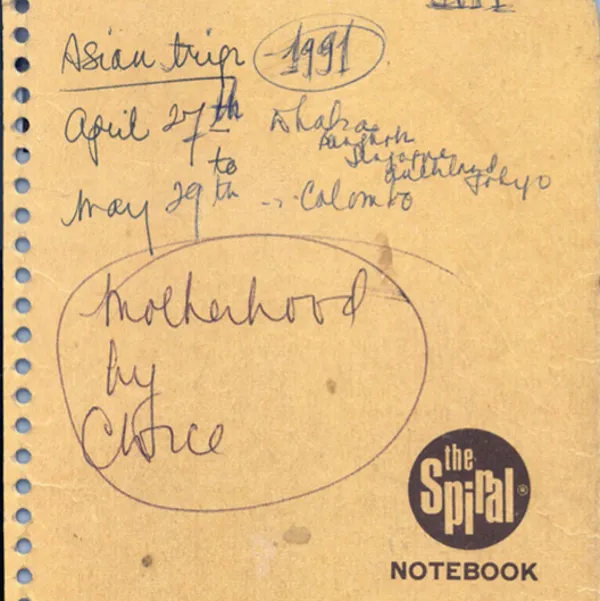 Asian trip 1991
April 27th Dhaka
Bangkok
Singapore
to
Tokyo
May 29th Colombo
Motherhood
by
Choice
the
Spiral®
NOTEBOOK